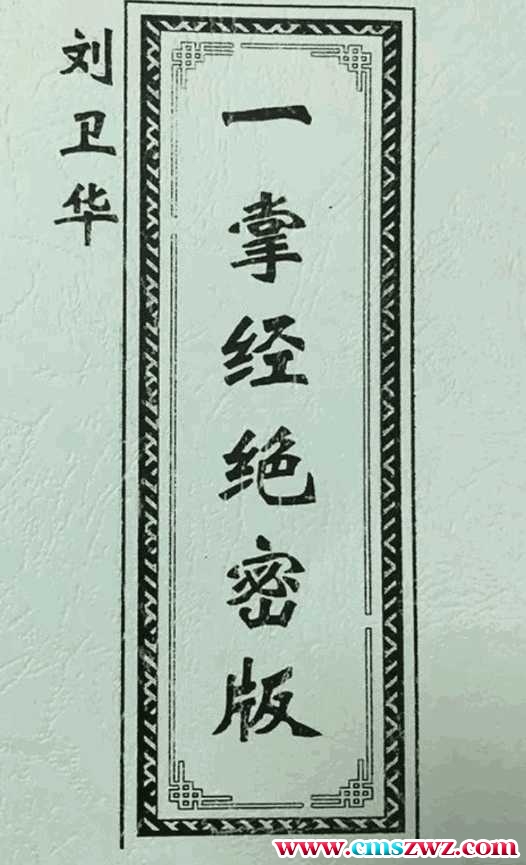 刘卫华
一掌经绝密版
www.cmszwz.com